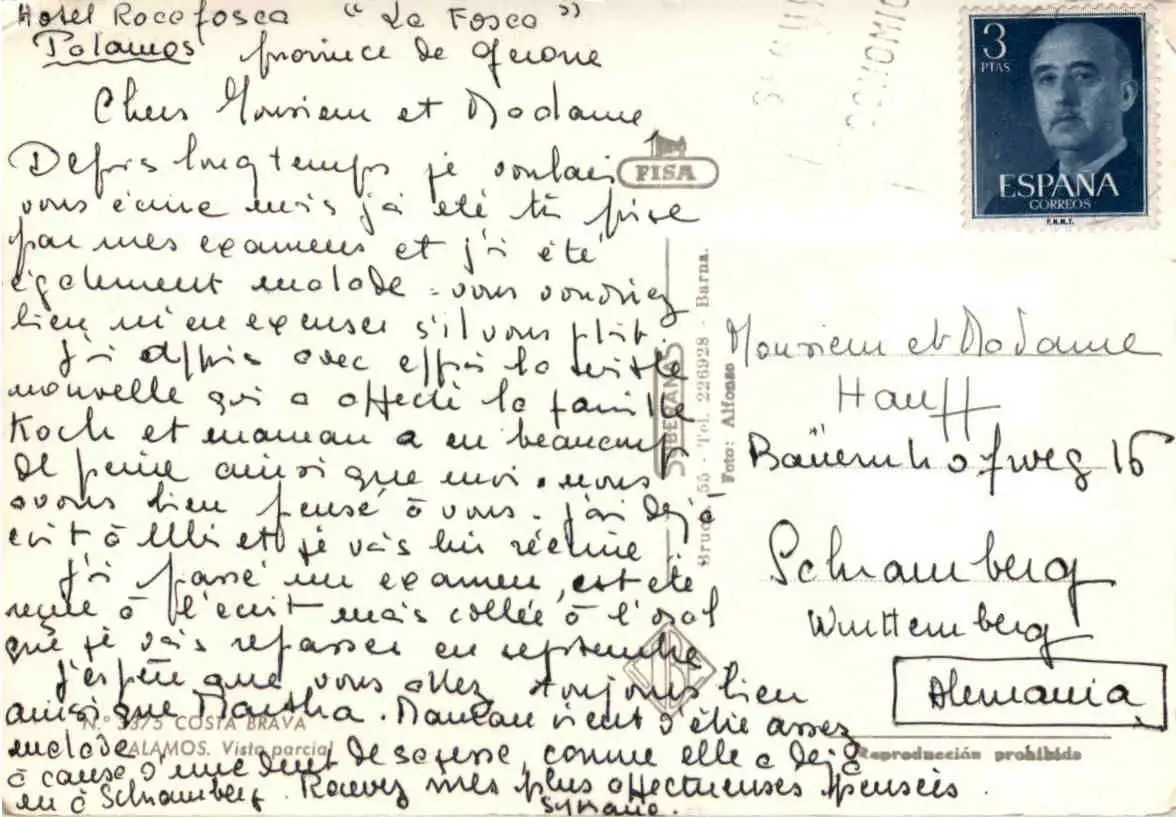 Hotel Rocafosca " La Fosca "
Palamos province de Gerone
Chers Monsieur et Madame
Depuis longtemps je voulais
vous écrire mais j'ai été très prise
par mes examens et j'ai été
également malade = vous voudriez
bien m'en excuser s'il vous plait.
J'ai appris avec effroi la triste
nouvelle qui a affecté la famille
Koch et maman a eu beaucoup
de peine ainsi que moi. nous
avons bien pensé à vous. j'ai dejà
ecrit à et je vais lui réécrire
J'ai passé un examen, est été
reçue à l'ecrit mais collée à l'oral
que je vais repasser en septembre
J'espère que vous allez toujours bien
ainsi que Martha. Maman vient d'être assez
malade
à cause d'une dent de sagesse, comme elle a dejà
eu à Schramberg. Recevez mes plus affectueuses pensées.
Sylvane.
FISA
SOBERANAS
Bruc, 55 - Tel. 226928 - Barna.
Foto: Alfonso
N.º 3375 COSTA BRAVA
PALAMOS. Vista parcial
3
PTAS
ESPAÑA
CORREOS
F.N.M.T.
Monsieur et Madame
Hauff
Bauernhofweg 16
Schramberg
Wurttemberg
Alemania
Reproducción prohibida